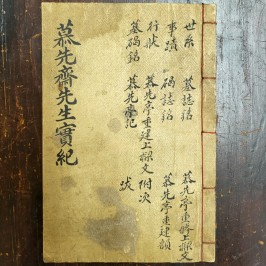 慕先齋先生實紀
世系
事蹟
行狀
墓碣銘
墓誌銘
碣誌銘
慕先亭重建上樑文
慕先亭記
附次
跋
慕先亭重修上樑文
慕先亭重建韻